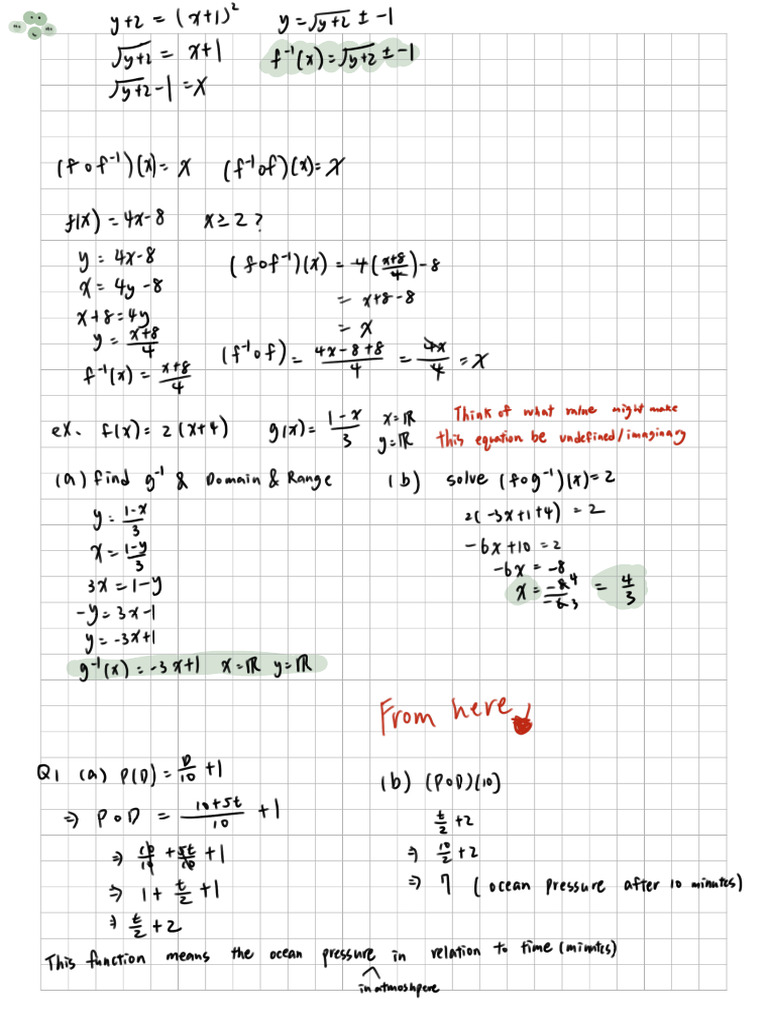 y+2 = (x+1)² y = √y+2 ± -1
√y+2 = x+1 f⁻¹(x) = √y+2 ± -1
√y+2 -1 = x
(f o f⁻¹)(x) = x (f⁻¹ o f)(x) = x
f(x) = 4x-8 x ≥ 2?
y = 4x-8 (f o f⁻¹)(x) = 4((x+8)/4) -8
x = 4y-8 = x+8-8
x+8 = 4y = x
y = (x+8)/4 (f⁻¹ o f) = (4x-8+8)/4 = 4x/4 = x
f⁻¹(x) = (x+8)/4
ex. f(x) = 2(x+4) g(x) = (1-x)/3 x=ℝ y=ℝ
Think of what value might make
this equation be undefined/imaginary
(a) find g⁻¹ & Domain & Range
y = (1-x)/3
x = (1-y)/3
3x = 1-y
-y = 3x-1
y = -3x+1
g⁻¹(x) = -3x+1 x=ℝ y=ℝ
(b) solve (f o g⁻¹)(x) = 2
2(-3x+1+4) = 2
-6x+10 = 2
-6x = -8
x = -8/-6 4 3 = 4/3
From here
Q1 (a) P(D) = D/10 +1
⇒ P o D = (10+5t)/10 +1
⇒ 10/10 + 5t/10 +1
⇒ 1 + t/2 +1
⇒ t/2 +2
(b) (P o D)(10)
t/2 +2
⇒ 10/2 +2
⇒ 7 (ocean pressure after 10 minutes)
This function means the ocean pressure in relation to time (minutes)
in atmoshpere